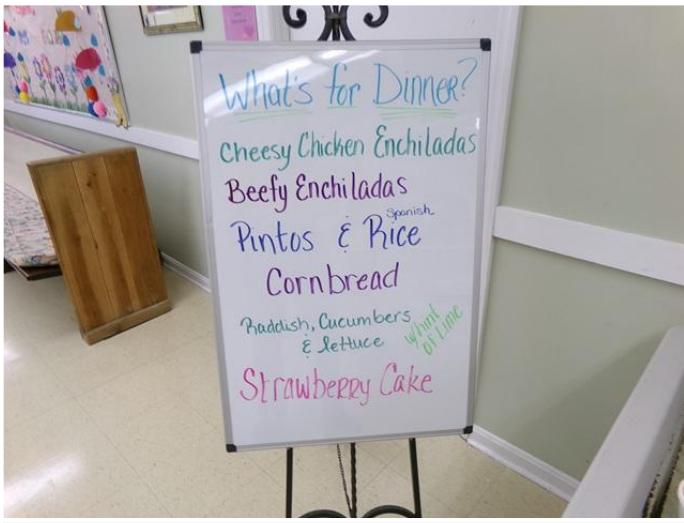 What's for Dinner?
Cheesy Chicken Enchiladas
Beefy Enchiladas
Spanish
Pintos & Rice
Cornbread
Raddish, Cucumbers
& lettuce
w/hint
of Lime
Strawberry Cake